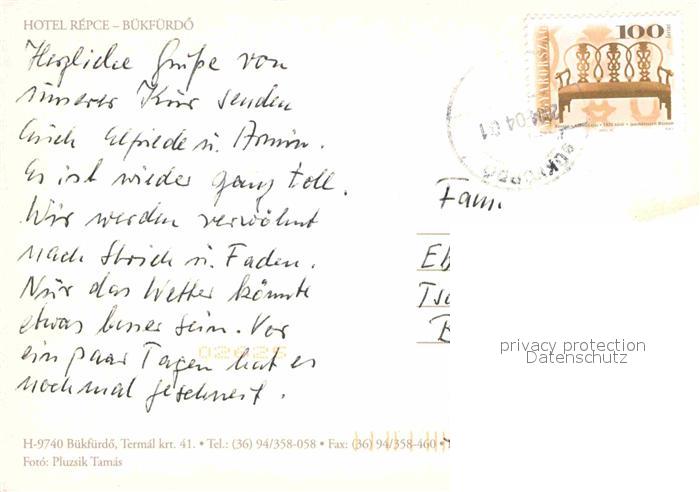 HOTEL RÉPCE – BÜKFÜRDŐ
Herzliche Grüße von
unserer Kur senden
Euch Elfriede u. Armin.
Es ist wieder ganz toll.
Wir werden verwöhnt
nach Strich u. Faden.
Nur das Wetter könnte
etwas besser sein. Vor
ein paar Tagen hat es
nochmal geschneit.
02625
H-9740 Bükfürdő, Termál krt. 41. • Tel.: (36) 94/358-058 • Fax: (36) 94/358-460 •
Fotó: Pluzsik Tamás
MAGYARORSZÁG
100
04 01
BÜKFÜRDŐ
Fam.
privacy protection
Datenschutz